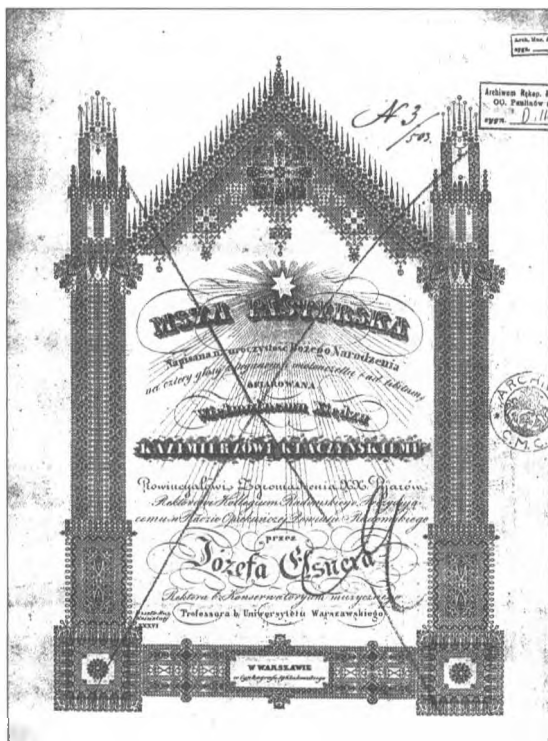 Arch. Muz.
sygn.
Archiwum Rękop.
OO. Paulinów
sygn. D. III
N 3
/503.
MSZA PASTERSKA
Napisana na uroczystość Bożego Narodzenia
na cztery głosy z organem, i małą ad libitum
OFIAROWANA
KAZIMIERZOWI KŁACZYŃSKIEMU
Prowincyałowi Zgromadzenia XX. Pijarów,
Rektorowi Kollegium Radomskiego,
cemu w Radzie Opiekuńczej Powiatu Radomskiego
przez
Józefa Elsnera
Rektora b. Konserwatoryum muzycznego
Professora b. Uniwersytetu Warszawskiego
XXXVI
W WARSZAWIE
ARCHI
C.M.C.